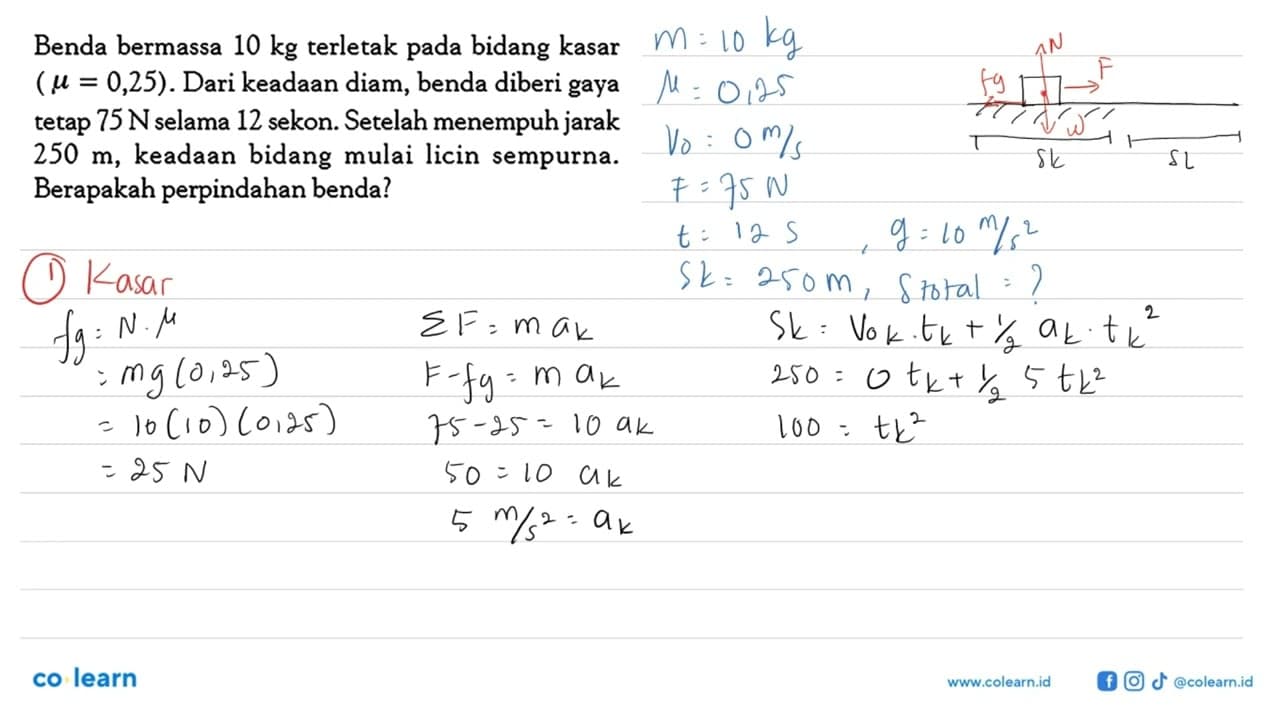 Benda bermassa 10 kg terletak pada bidang kasar
(μ = 0,25). Dari keadaan diam, benda diberi gaya
tetap 75 N selama 12 sekon. Setelah menempuh jarak
250 m, keadaan bidang mulai licin sempurna.
Berapakah perpindahan benda?
m = 10 kg
μ = 0,25
Vo = 0 m/s
F = 75 N
t = 12 S , g = 10 m/s²
Sk = 250 m, Stotal = ?
N
fg
F
W
Sk
SL
① Kasar
fg = N . μ
= mg (0,25)
= 10 (10) (0,25)
= 25 N
ΣF = m ak
F - fg = m ak
75 - 25 = 10 ak
50 = 10 ak
5 m/s² = ak
Sk = Vok . tk + 1/2 ak . tk²
250 = 0 tk + 1/2 5 tk²
100 = tk²
co learn
www.colearn.id
@colearn.id